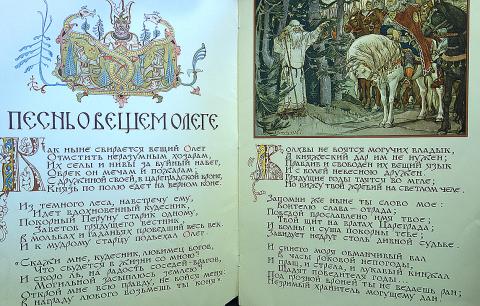 ПЕСНЬ О ВЕЩЕМ ОЛЕГЕ
Как ныне сбирается вещий Олег
Отмстить неразумным хозарам,
Их селы и нивы за буйный набег,
Обрек он мечам и пожарам;
С дружиной своей, в цареградской броне,
Князь по полю едет на верном коне.
Из темного леса, навстречу ему,
Идет вдохновенный кудесник,
Покорный Перуну старик одному,
Заветов грядущего вестник,
В мольбах и гаданьях проведший весь век.
И к мудрому старцу подъехал Олег.
«Скажи мне, кудесник, любимец богов,
Что сбудется в жизни со мною?
И скоро ль, на радость соседей-врагов,
Могильной засыплюсь землею?
Открой мне всю правду, не бойся меня:
В награду любого возьмешь ты коня».
Волхвы не боятся могучих владык,
А княжеский дар им не нужен;
Правдив и свободен их вещий язык
И с волей небесною дружен.
Грядущие годы таятся во мгле;
Но вижу твой жребий на светлом челе.
Запомни же ныне ты слово мое:
Воителю слава - отрада;
Победой прославлено имя твое;
Твой щит на вратах Цареграда;
И волны и суша покорны тебе;
Завидует недруг столь дивной судьбе.
И синего моря обманчивый вал
В часы роковой непогоды,
И пращ, и стрела, и лукавый кинжал
Щадят победителя годы...
Под грозной броней ты не ведаешь ран;
Незримый хранитель могущему дан.